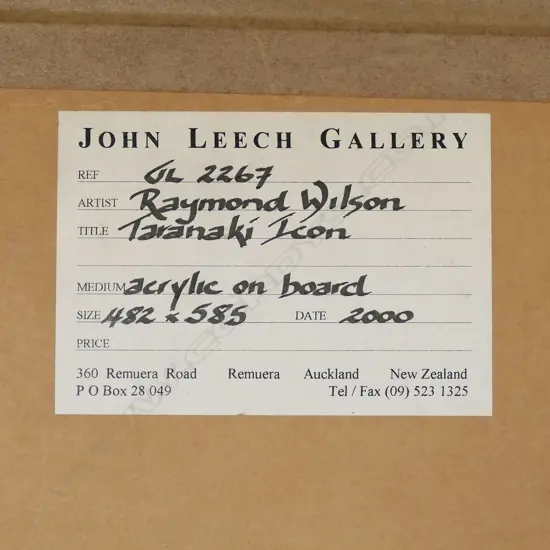 JOHN LEECH GALLERY
REF GL 2267
ARTIST Raymond Wilson
TITLE Taranaki Icon
MEDIUM acrylic on board
SIZE 482 x 585 DATE 2000
PRICE
360 Remuera Road Remuera Auckland New Zealand
P O Box 28 049 Tel / Fax (09) 523 1325